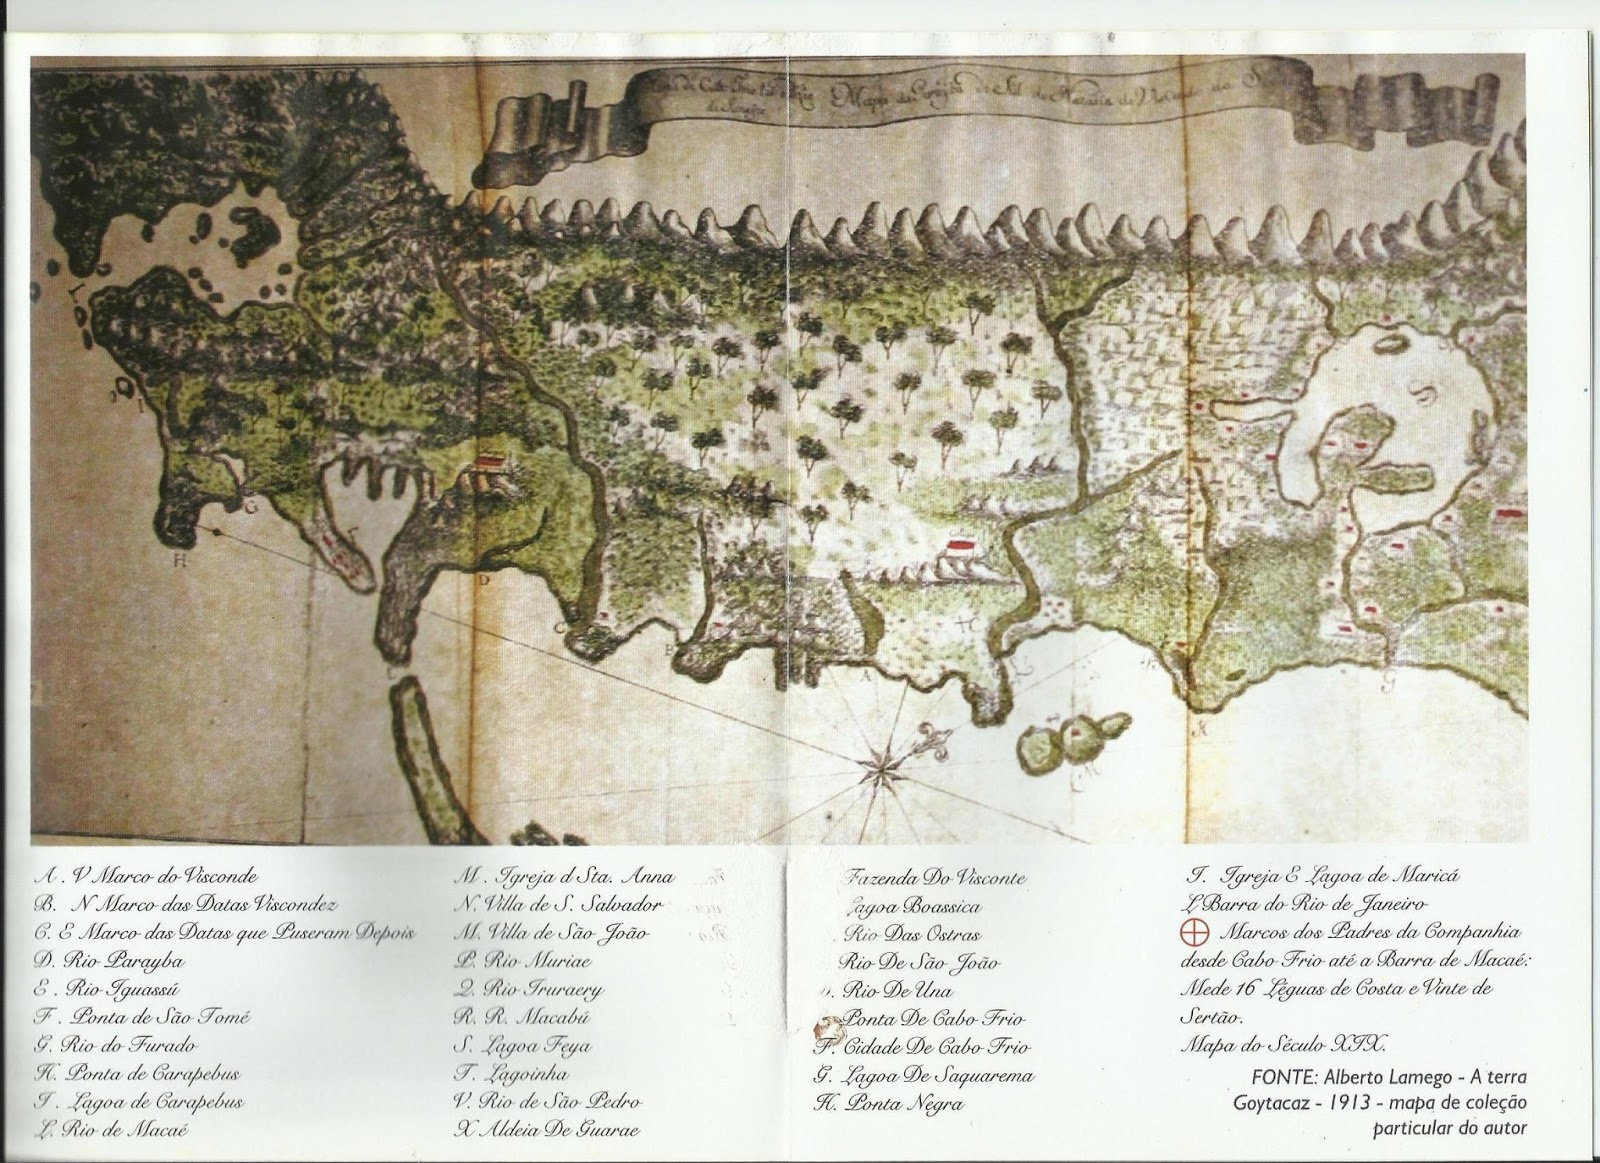 Mappa
A . V Marco do Visconde
B. N Marco das Datas Viscondez
C. E Marco das Datas que Puseram Depois
D. Rio Parayba
E . Rio Iguassú
F . Ponta de São Tomé
G. Rio do Furado
H. Ponta de Carapebus
I . Lagoa de Carapebus
L. Rio de Macaé
M . Igreja d Sta. Anna
N. Villa de S. Salvador
M. Villa de São João
P. Rio Muriae
Q. Rio Iruraery
R. R. Macabú
S. Lagoa Feya
T. Lagoinha
V. Rio de São Pedro
X Aldeia De Guarae
Fazenda Do Visconte
Lagoa Boassica
Rio Das Ostras
Rio De São João
Rio De Una
Ponta De Cabo Frio
F. Cidade De Cabo Frio
G. Lagoa De Saquarema
H. Ponta Negra
I. Igreja E Lagoa de Maricá
L Barra do Rio de Janeiro
Marcos dos Padres da Companhia
desde Cabo Frio até a Barra de Macaé:
Mede 16 Léguas de Costa e Vinte de
Sertão.
Mapa do Século XIX.
FONTE: Alberto Lamego - A terra
Goytacaz - 1913 - mapa de coleção
particular do autor